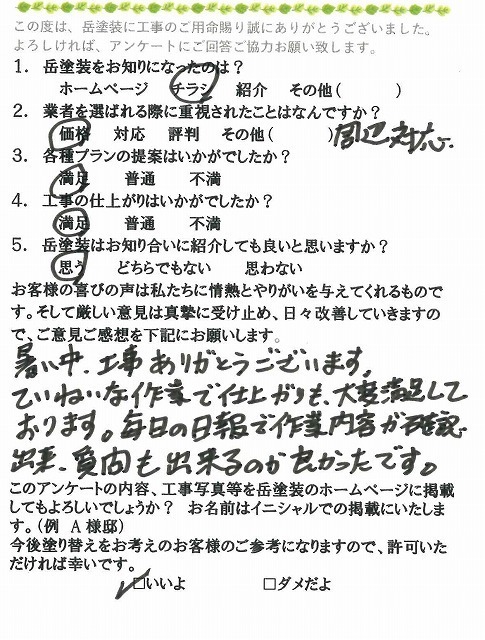 この度は、岳塗装に工事のご用命賜り誠にありがとうございました。
よろしければ、アンケートにご回答ご協力お願い致します。
1. 岳塗装をお知りになったのは?
ホームページ チラシ 紹介 その他( )
2. 業者を選ばれる際に重視されたことはなんですか?
価格 対応 評判 その他( ) 周辺対応
3. 各種プランの提案はいかがでしたか?
満足 普通 不満
4. 工事の仕上がりはいかがでしたか?
満足 普通 不満
5. 岳塗装はお知り合いに紹介しても良いと思いますか?
思う どちらでもない 思わない
お客様の喜びの声は私たちに情熱とやりがいを与えてくれるもので
す。そして厳しい意見は真摯に受け止め、日々改善していきますの
で、ご意見ご感想を下記にお願いします。
暑い中、工事ありがとうございます。
ていねいな作業で仕上がりも、大変満足して
おります。毎日の日報で作業内容が確認
出来、質問も出来るのが良かったです。
このアンケートの内容、工事写真等を岳塗装のホームページに掲載
してもよろしいでしょうか? お名前はイニシャルでの掲載にいたしま
す。(例 A 様邸)
今後塗り替えをお考えのお客様のご参考になりますので、許可いた
だければ幸いです。
✓□いいよ □ダメだよ